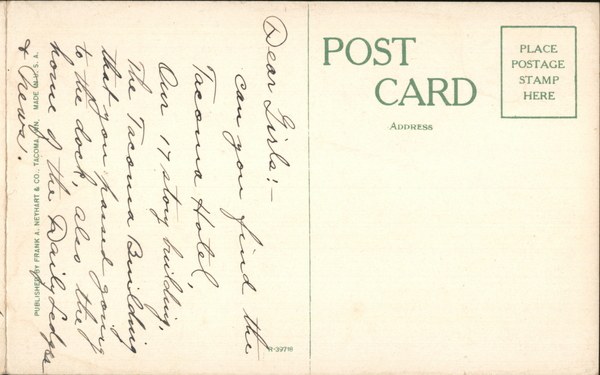 Dear Girls:—
can you find the
Tacoma Hotel,
Our 17 story building,
The Tacoma Building
that you passed going
to the dock, also the
home of the Daily Ledger
& News.
PUBLISHED BY FRANK A. NEYHART & CO., TACOMA, WN. MADE IN U. S. A.
R-39718
POST
CARD
ADDRESS
PLACE
POSTAGE
STAMP
HERE